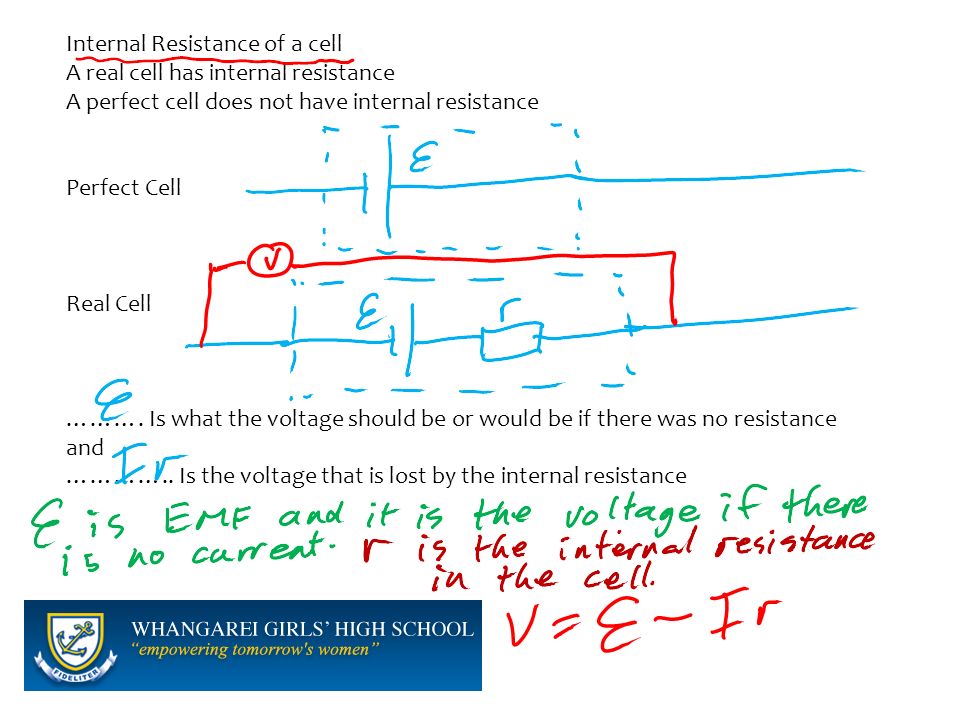 Internal Resistance of a cell
A real cell has internal resistance
A perfect cell does not have internal resistance
ε
Perfect Cell
V
Real Cell
ε r
………. Is what the voltage should be or would be if there was no resistance
ε
and
………….. Is the voltage that is lost by the internal resistance
Ir
ε is EMF and it is the voltage if there
is no current. r is the internal resistance
in the cell.
V = ε - Ir
WHANGAREI GIRLS' HIGH SCHOOL
"empowering tomorrow's women"
FIDELITER